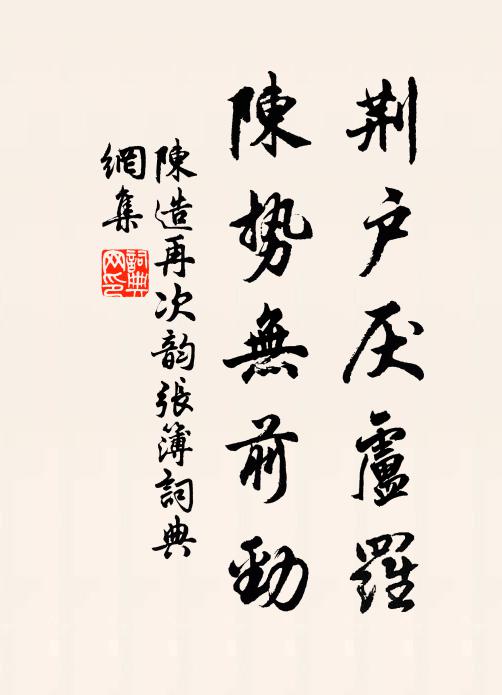 荆户厌盧羅
陳势無前勁
陳造再次韵張簿詞典
網集
詞典
网印